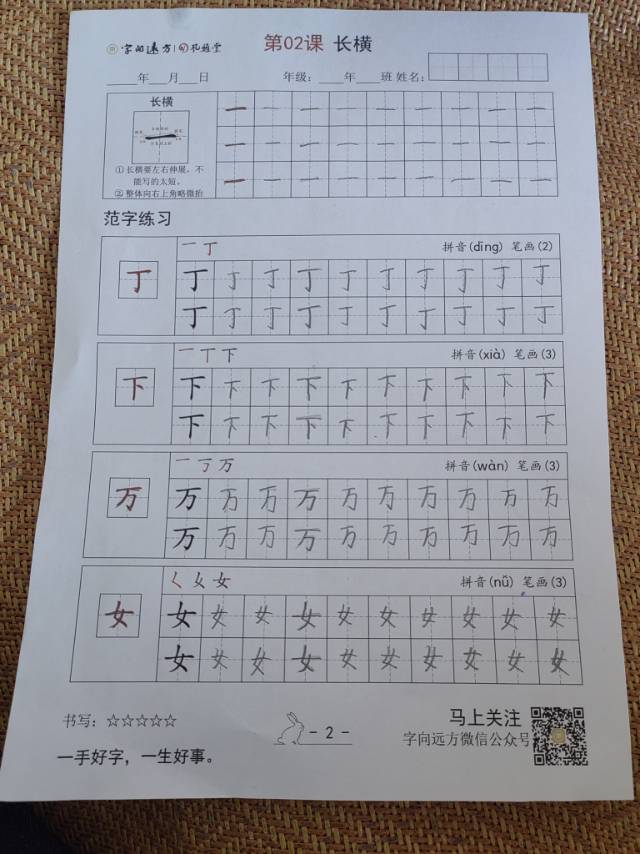 字向远方 孔超堂 第02课 长横
____年___月___日 年级：____年____班 姓名：
长横
① 长横要左右伸展，不
能写的太短。
② 整体向右上角略微抬
范字练习
一 丁 拼音(dīng) 笔画(2)
丁 丁 丁 丁 丁 丁 丁 丁 丁 丁 丁
丁 丁 丁 丁 丁 丁 丁 丁 丁 丁
一 丅 下 拼音(xià) 笔画(3)
下 下 下 下 下 下 下 下 下 下 下
下 下 下 下 下 下 下 下 下 下
一 丂 万 拼音(wàn) 笔画(3)
万 万 万 万 万 万 万 万 万 万 万
万 万 万 万 万 万 万 万 万 万
く 女 女 拼音(nǚ) 笔画(3)
女 女 女 女 女 女 女 女 女 女 女
女 女 女 女 女 女 女 女 女 女
书写：☆☆☆☆☆ - 2 - 马上关注
字向远方微信公众号
一手好字，一生好事。